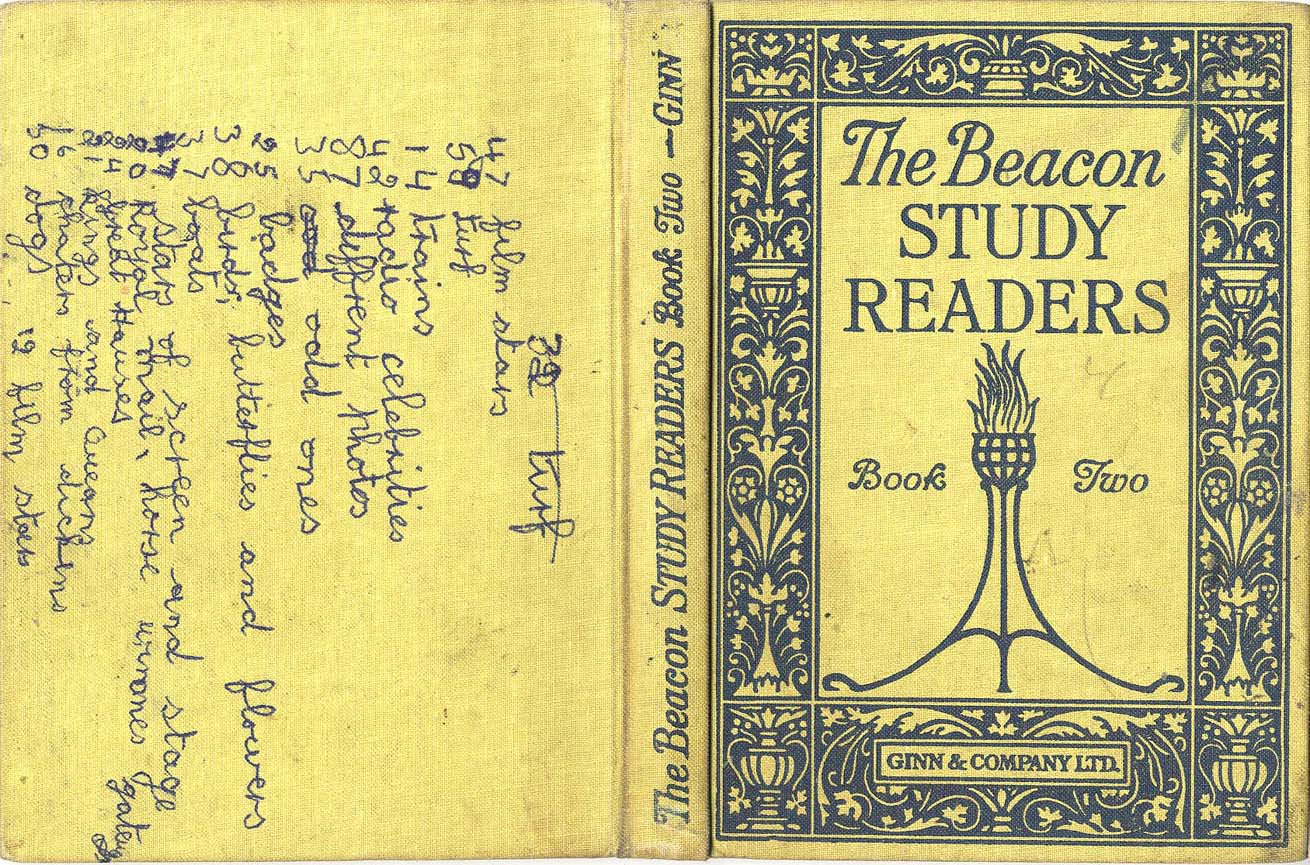 39 turf
47 film stars
58 turf
14 trains
48 radio celebrities
87 diffrent photos
35 odd ones
25 badges
38 birds, butterflies and flowers
37 boats
stars of screen and stage
Royal mail, horse
great Houses
kings and Queens
chaters from dickens
50 dogs 19 film stars
The Beacon STUDY READERS Book Two—GINN
The Beacon
STUDY
READERS
Book Two
GINN & COMPANY LTD.